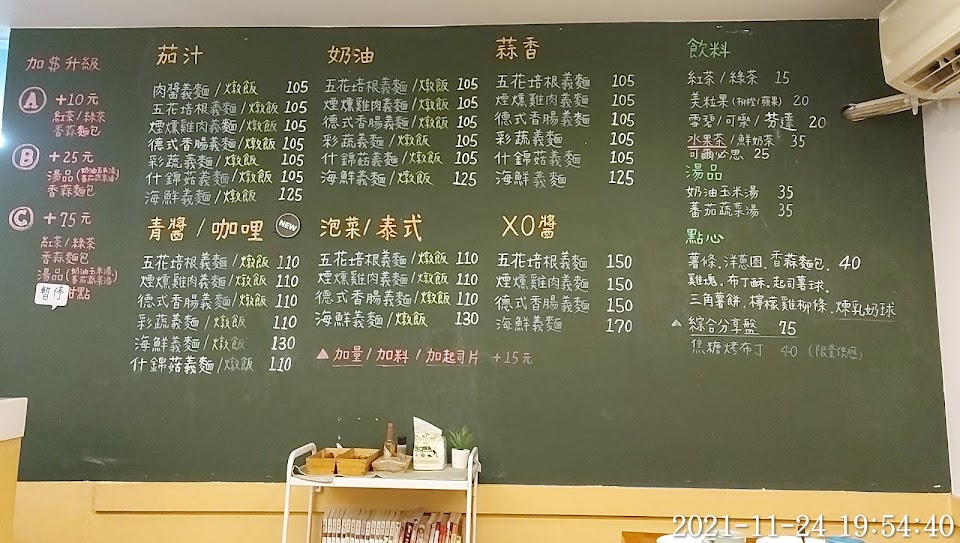 加$升級
A +10元
紅茶/綠茶
香蒜麵包
B +25元
湯品(奶油玉米湯/蕃茄蔬菜湯)
香蒜麵包
C +75元
紅茶/綠茶
香蒜麵包
湯品(奶油玉米湯/蕃茄蔬菜湯)
暫停 甜點
茄汁
肉醬義麵/燉飯 105
五花培根義麵/燉飯 105
煙燻雞肉義麵/燉飯 105
德式香腸義麵/燉飯 105
彩蔬義麵/燉飯 105
什錦菇義麵/燉飯 105
海鮮義麵/燉飯 125
奶油
五花培根義麵/燉飯 105
煙燻雞肉義麵/燉飯 105
德式香腸義麵/燉飯 105
彩蔬義麵/燉飯 105
什錦菇義麵/燉飯 105
海鮮義麵/燉飯 125
蒜香
五花培根義麵 105
煙燻雞肉義麵 105
德式香腸義麵 105
彩蔬義麵 105
什錦菇義麵 105
海鮮義麵 125
青醬/咖哩 NEW
五花培根義麵/燉飯 110
煙燻雞肉義麵/燉飯 110
德式香腸義麵/燉飯 110
彩蔬義麵/燉飯 110
海鮮義麵/燉飯 130
什錦菇義麵/燉飯 110
泡菜/泰式
五花培根義麵/燉飯 110
煙燻雞肉義麵/燉飯 110
德式香腸義麵/燉飯 110
海鮮義麵/燉飯 130
XO醬
五花培根義麵 150
煙燻雞肉義麵 150
德式香腸義麵 150
海鮮義麵 170
▲加量/加料/加起司片 +15元
飲料
紅茶/綠茶 15
美粒果(柳橙/蘋果) 20
雪碧/可樂/芬達 20
水果茶/鮮奶茶 35
可爾必思 25
湯品
奶油玉米湯 35
蕃茄蔬菜湯 35
點心
薯條.洋蔥圈.香蒜麵包. 40
雞塊.布丁酥.起司薯球.
三角薯餅.檸檬雞柳條.煉乳奶球
▲綜合分享盤 75
焦糖烤布丁 40 (限量供應)
2021-11-24 19:54:40